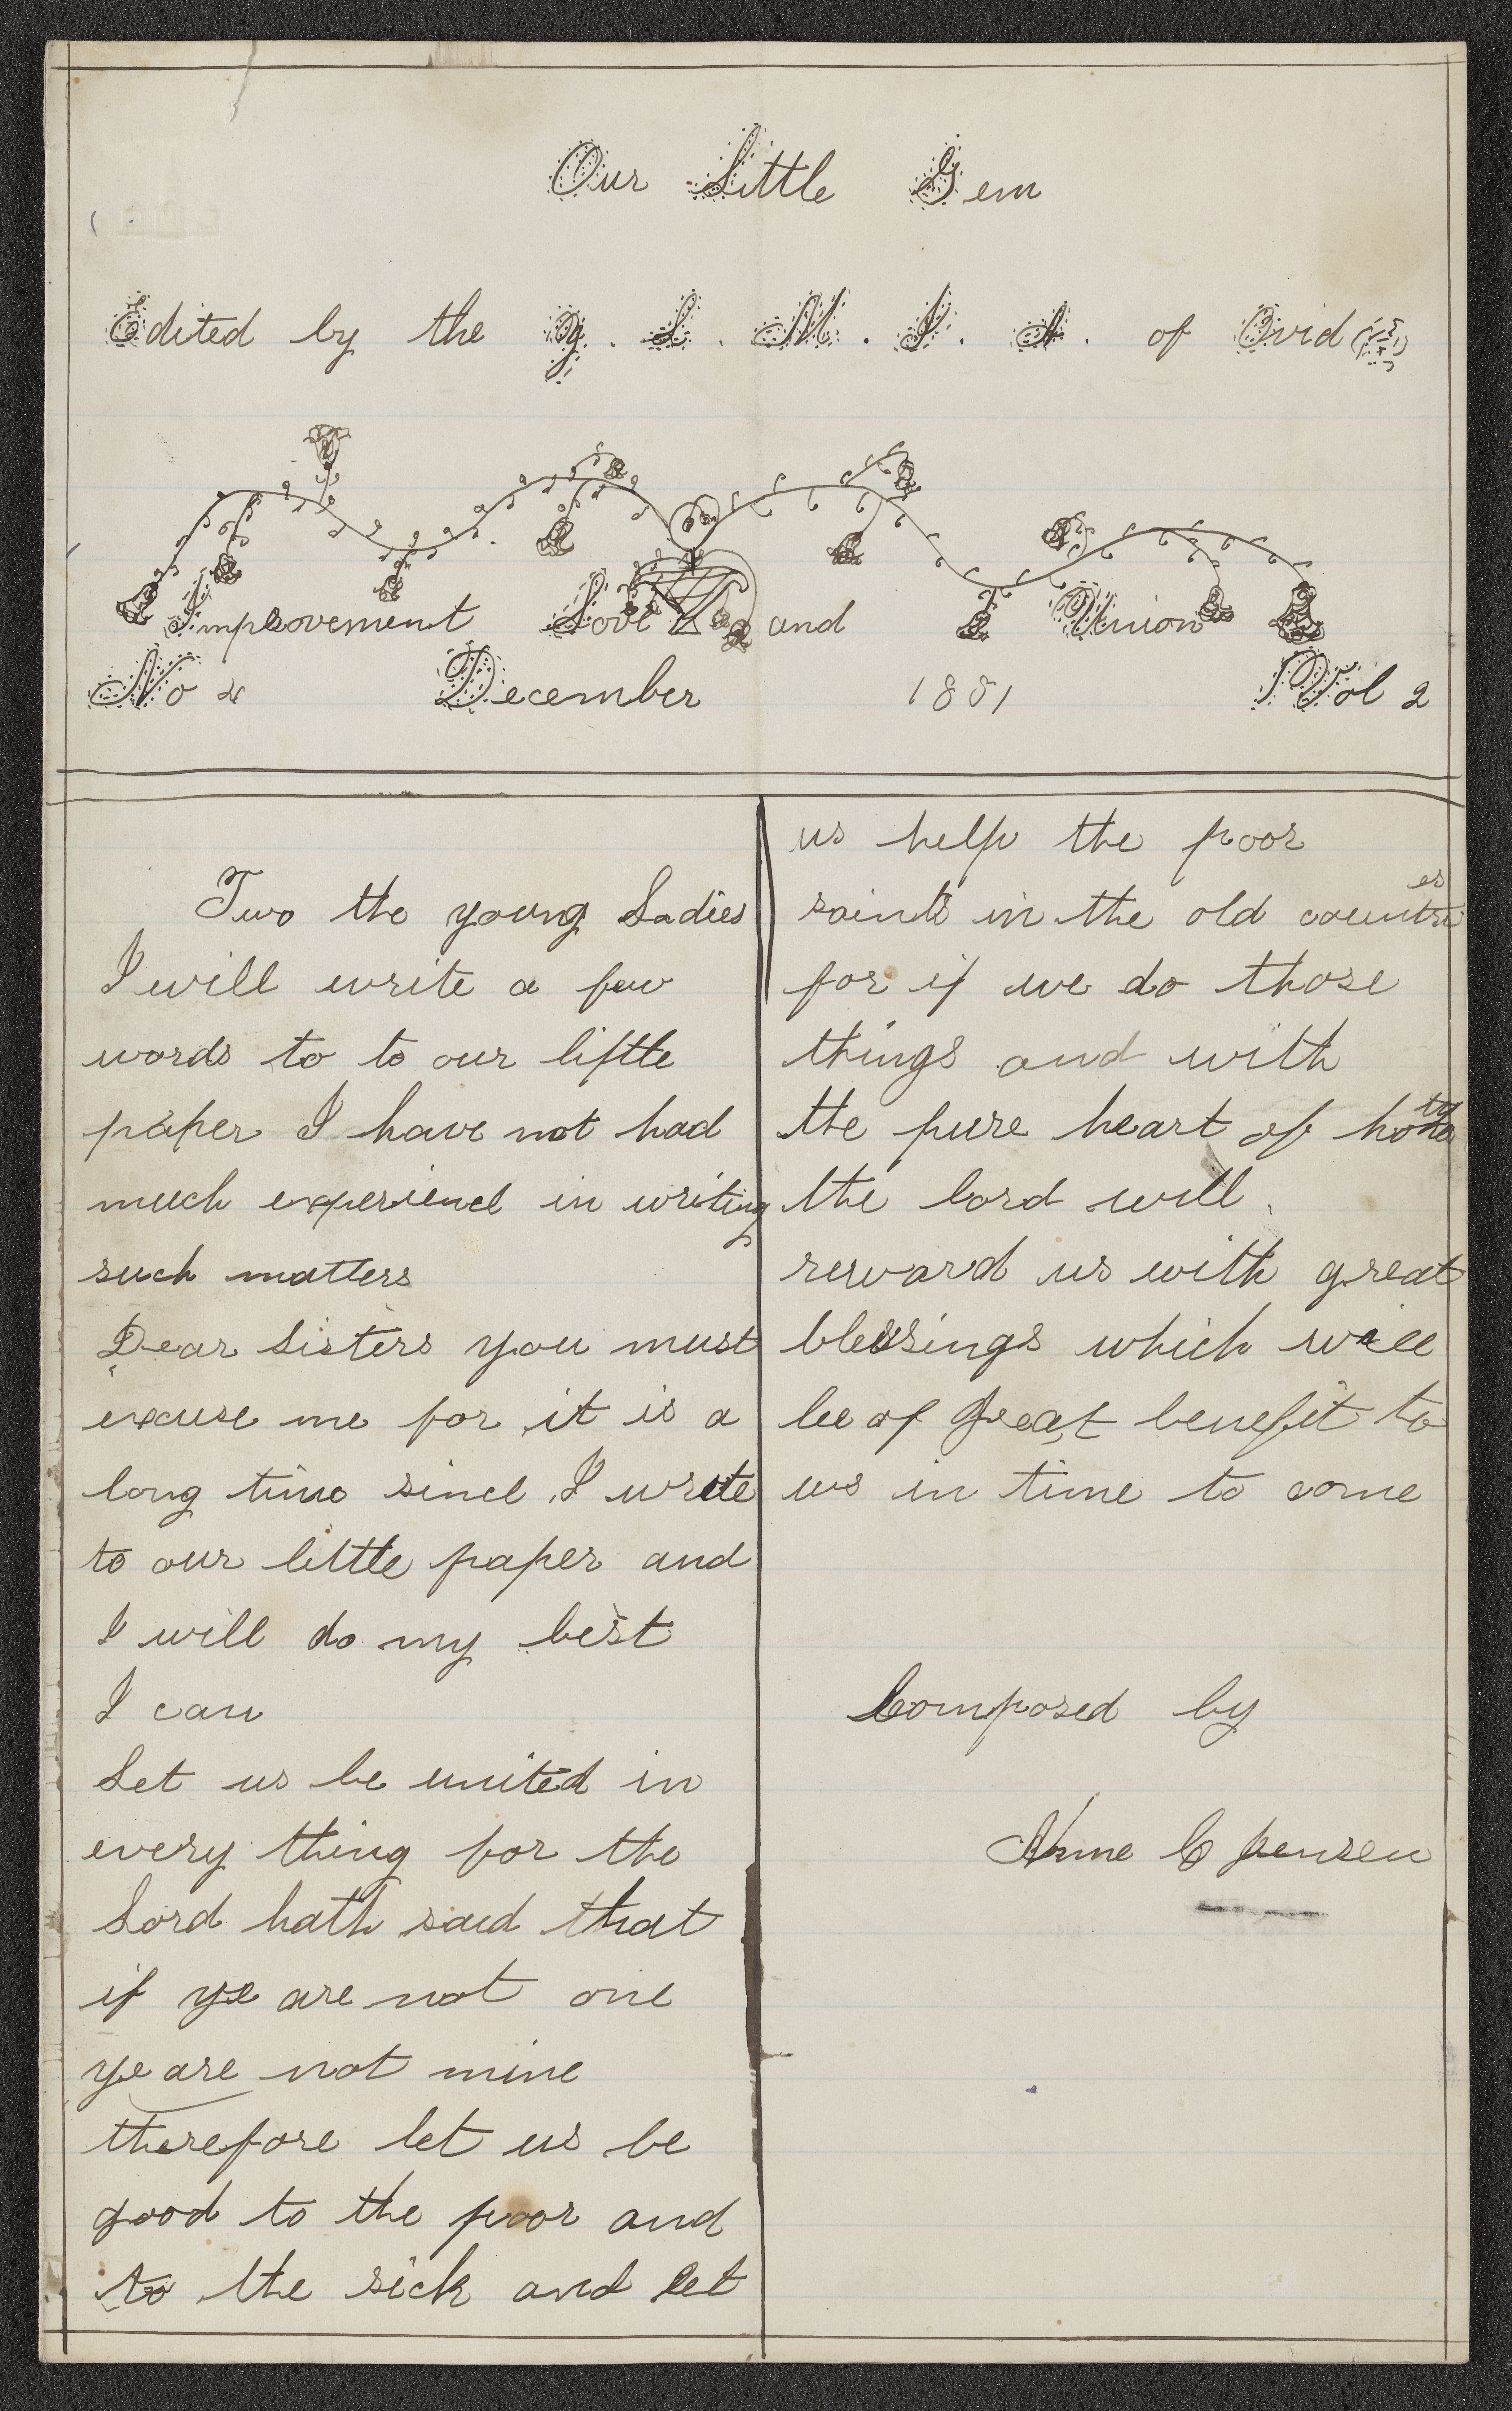 Our Little Gem
Edited by the Y. L. M. I. A. of Ovid
Improvement Love and Union
No 4 December 1881 Vol 2
Two the young Ladies
I will write a few
words to to our liftle
paper I have not had
much experience in writing
such matters
Dear Sisters you must
excuse me for it is a
long time since I wrote
to our little paper and
I will do my best
I can
Let us be united in
every thing for the
Lord hath said that
if ye are not one
ye are not mine
therefore let us be
good to the poor and
to the sick and let
us help the poor
saints in the old countries
for if we do those
things and with
the pure heart of
the lord will
reward us with great
blessings which will
be of great benefit to
us in time to come
Composed by
Anne C Jensen